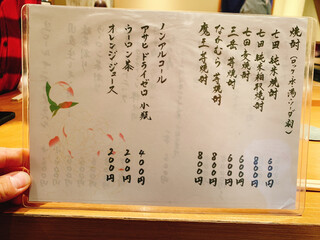 焼酎(ロック・水・湯・ソーダ割)
七田 純米焼酎 600円
七田 純米粕取焼酎 800円
七田 麦焼酎 600円
三岳 芋焼酎 600円
なかむら 芋焼酎 800円
魔王 芋焼酎 800円
ノンアルコール
アサヒドライゼロ 小瓶 400円
ウーロン茶 200円
オレンジジュース 200円